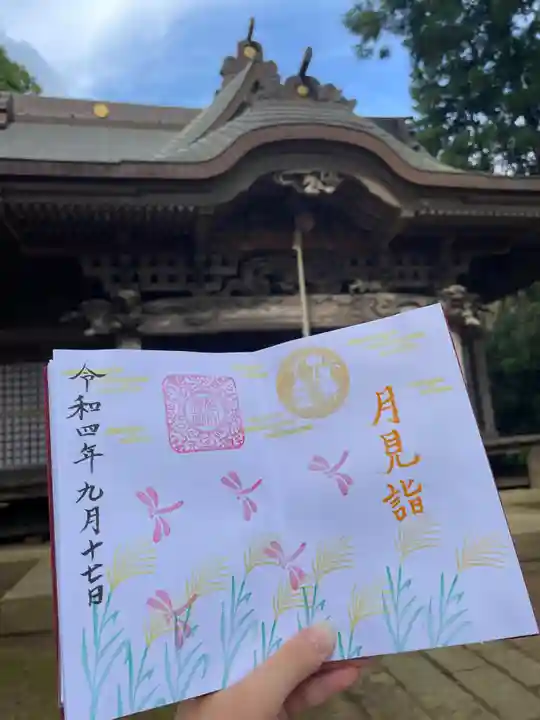 月見詣
令和四年九月十七日